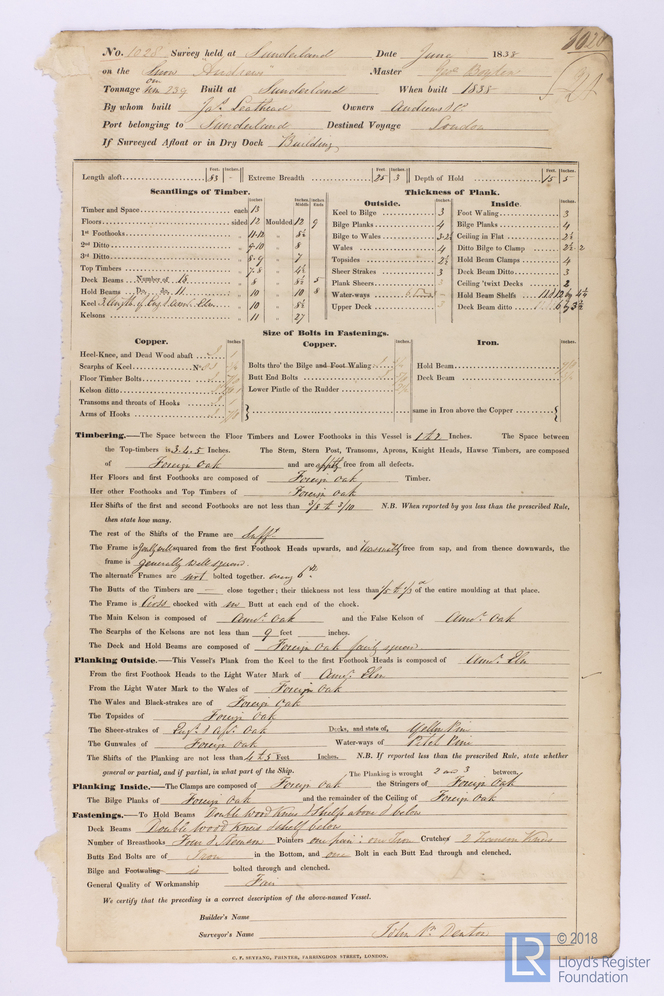 No. 1028 Survey held at Sunderland Date June 1838
on the Snow "Andrews" Master
Tonnage 239 Built at Sunderland When built 1838
By whom built Jas. Leathead Owners Andrews & Co
Port belonging to Sunderland Destined Voyage London
If Surveyed Afloat or in Dry Dock Building
Length aloft 83 - Extreme Breadth 25 3 Depth of Hold 15 5
Scantlings of Timber. Thickness of Plank.
Outside. Inside.
Timber and Space each 13 Keel to Bilge 3 Foot Waling 3
Floors sided 12 Moulded 12 9 Bilge Planks 4 Bilge Planks 4
1st Foothooks 8½ Bilge to Wales Ceiling in Flat 2½
2nd Ditto 9-10 8 Wales 4 Ditto Bilge to Clamp
3rd Ditto 8-9 7 Topsides 2½ Hold Beam Clamps 4
Top Timbers 7-8 4½ Sheer Strakes 3 Deck Beam Ditto 3
Deck Beams Number of 18 8 8½ 5 Plank Sheers Ceiling 'twixt Decks 2
Hold Beams Do. Do. 11 10 10 8 Water-ways Hold Beam Shelfs
Keel 10 8½ Upper Deck 3 Deck Beam ditto
Kelsons 11 27
Size of Bolts in Fastenings.
Copper. Copper. Iron.
Heel-Knee, and Dead Wood abaft
Scarphs of Keel No. Bolts thro' the Bilge and Foot Waling Hold Beam
Floor Timber Bolts Butt End Bolts Deck Beam
Kelson ditto Lower Pintle of the Rudder
Transoms and throats of Hooks
Arms of Hooks same in Iron above the Copper
Timbering.—The Space between the Floor Timbers and Lower Foothooks in this Vessel is 1 & 2 Inches. The Space between
the Top-timbers is 3.4.5 Inches. The Stem, Stern Post, Transoms, Aprons, Knight Heads, Hawse Timbers, are composed
of Foreign Oak and are free from all defects.
Her Floors and first Foothooks are composed of Foreign Oak Timber.
Her other Foothooks and Top Timbers of Foreign Oak
Her Shifts of the first and second Foothooks are not less than 3/8 to 3/10 N.B. When reported by you less than the prescribed Rule,
then state how many.
The rest of the Shifts of the Frame are Sufft.
The Frame is squared from the first Foothook Heads upwards, and free from sap, and from thence downwards, the
frame is generally well squared.
The alternate Frames are not bolted together. every 6th.
The Butts of the Timbers are — close together; their thickness not less than of the entire moulding at that place.
The Frame is Cross chocked with no Butt at each end of the chock.
The Main Kelson is composed of Amn. Oak and the False Kelson of Amn. Oak
The Scarphs of the Kelsons are not less than 9 feet inches.
The Deck and Hold Beams are composed of Foreign Oak fairly square
Planking Outside.—This Vessel's Plank from the Keel to the first Foothook Heads is composed of Amn. Elm
From the first Foothook Heads to the Light Water Mark of Amn. Elm
From the Light Water Mark to the Wales of Foreign Oak
The Wales and Black-strakes are of Foreign Oak
The Topsides of Foreign Oak
The Sheer-strakes of Engl. & Afn. Oak Decks, and state of, Yellow Pine
The Gunwales of Foreign Oak Water-ways of Pitch Pine
The Shifts of the Planking are not less than 4 & 5 Feet Inches. N.B. If reported less than the prescribed Rule, state whether
general or partial, and if partial, in what part of the Ship. The Planking is wrought 2 and 3 between.
Planking Inside.—The Clamps are composed of Foreign Oak the Stringers of Foreign Oak
The Bilge Planks of Foreign Oak and the remainder of the Ceiling of Foreign Oak
Fastenings.—To Hold Beams Double Wood Knees & Shelfs above & below
Deck Beams Double Wood Knees & shelf below
Number of Breasthooks Four & Pointers one pair: one Iron Crutches 2 Transom Knees
Butts End Bolts are of Iron in the Bottom, and one Bolt in each Butt End through and clenched.
Bilge and Footwaling is bolted through and clenched.
General Quality of Workmanship Fair
We certify that the preceding is a correct description of the above-named Vessel.
Builder's Name
Surveyor's Name John Denton
C. F. SEYFANG, PRINTER, FARRINGDON STREET, LONDON.
LR © 2018
Lloyd's Register
Foundation